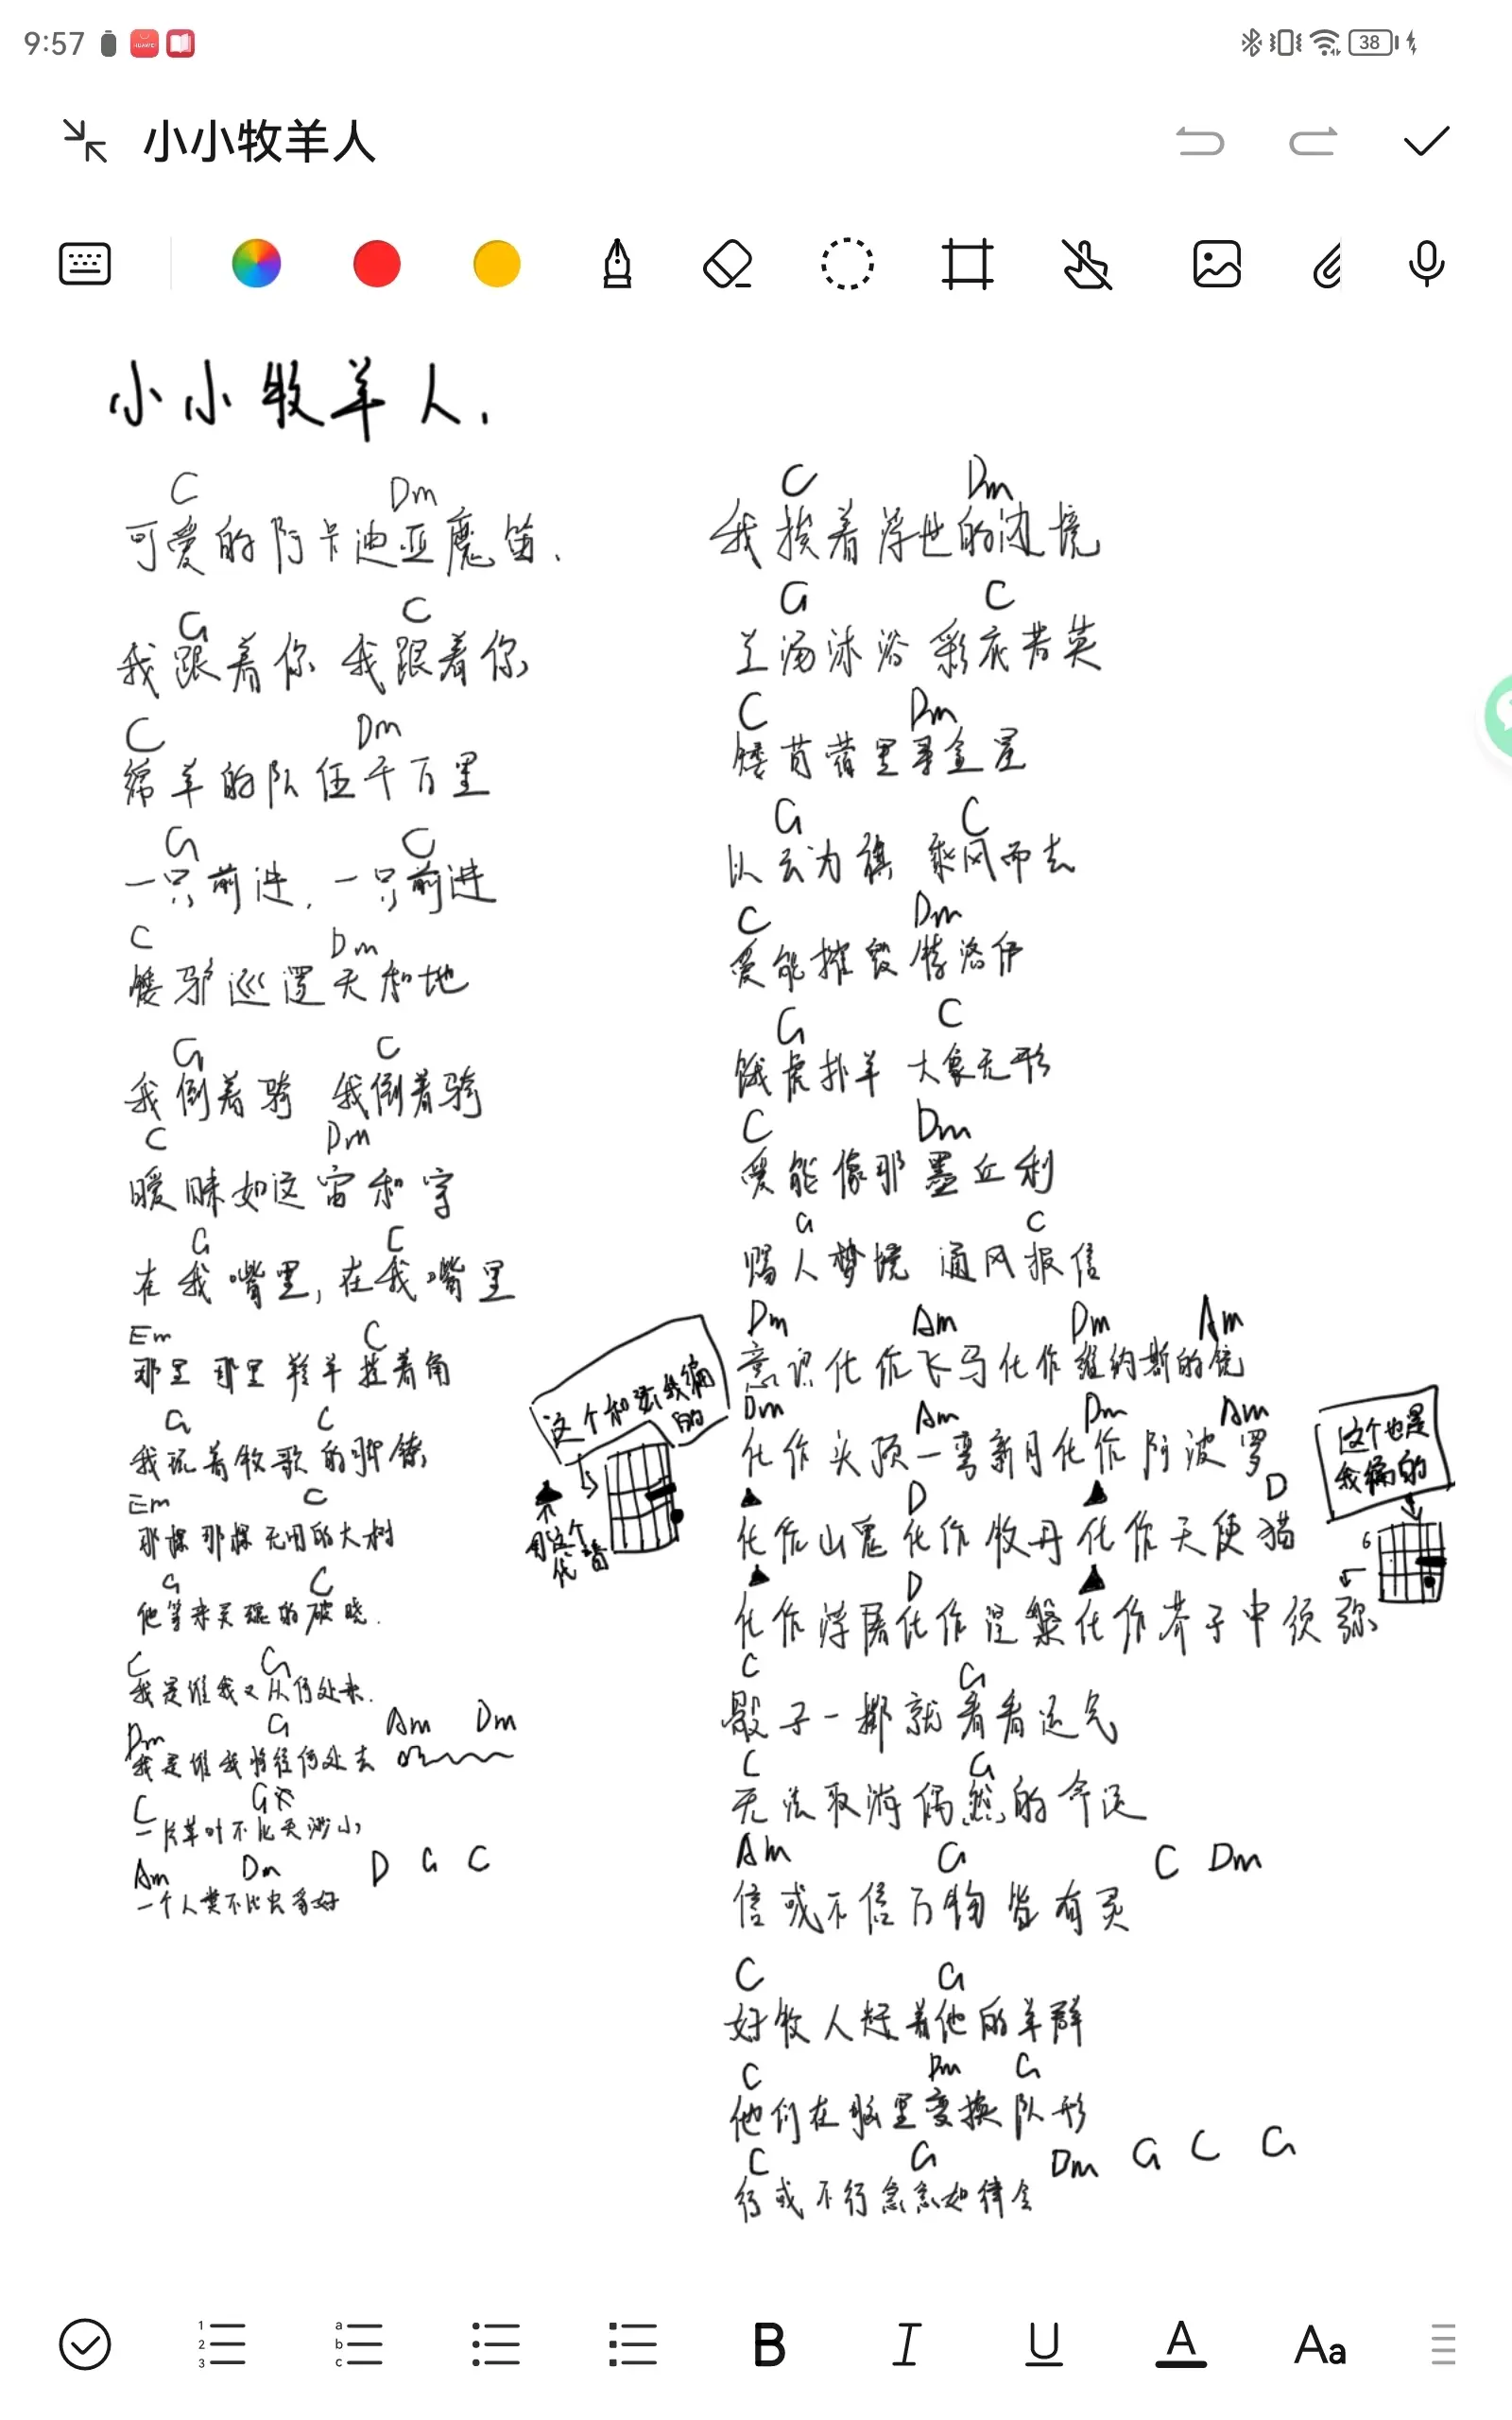 9:57
38
小小牧羊人
小小牧羊人.
C Dm
可爱的阿卡迪亚魔笛.
G C
我跟着你 我跟着你
C Dm
绵羊的队伍千百里
G C
一只前进, 一只前进
C Dm
矮驴巡逻天和地
G C
我倒着骑 我倒着骑
C Dm
暧昧如这宙和宇
G C
在我嘴里, 在我嘴里
Em C
那里那里 羚羊挂着角
G C
我玩着牧歌的脚镣
Em C
那探那探无用的大树
G C
他等来灵魂的破晓.
C G
我是谁我又从何处来.
Dm G Am Dm
我是谁我将往何处去
C G
一片草叶不比天渺小
Am Dm D G C
一个人类不比虫多好
C Dm
我挨着浮世的边境
G C
兰汤沐浴 彩衣若英
C Dm
矮苜蓿里寻金星
G C
以云为旗 乘风而去
C Dm
爱能摧毁特洛伊
G C
饿虎扑羊 大象无形
C Dm
爱能像那墨丘利
G C
赐人梦境 通风报信
Dm Am Dm Am
意识化作飞马化作维纳斯的镜
Dm Am Dm Am
化作头顶一弯新月化作阿波罗
▲ D ▲ D
化作山鬼化作牧丹化作天使猫
▲ D ▲
化作浮屠化作涅槃化作芥子中须弥
C G
骰子一掷就看看运气
C G
无法取消偶然的命运
Am G C Dm
信或不信万物皆有灵
C G
好牧人赶着他的羊群
C Dm G
他们在脑里变换队形
C G Dm G C G
行或不行急急如律令
这个和弦我编的
▲
用这个代替
这个也是我编的
6
1 2 3
a b c
B I U A Aa